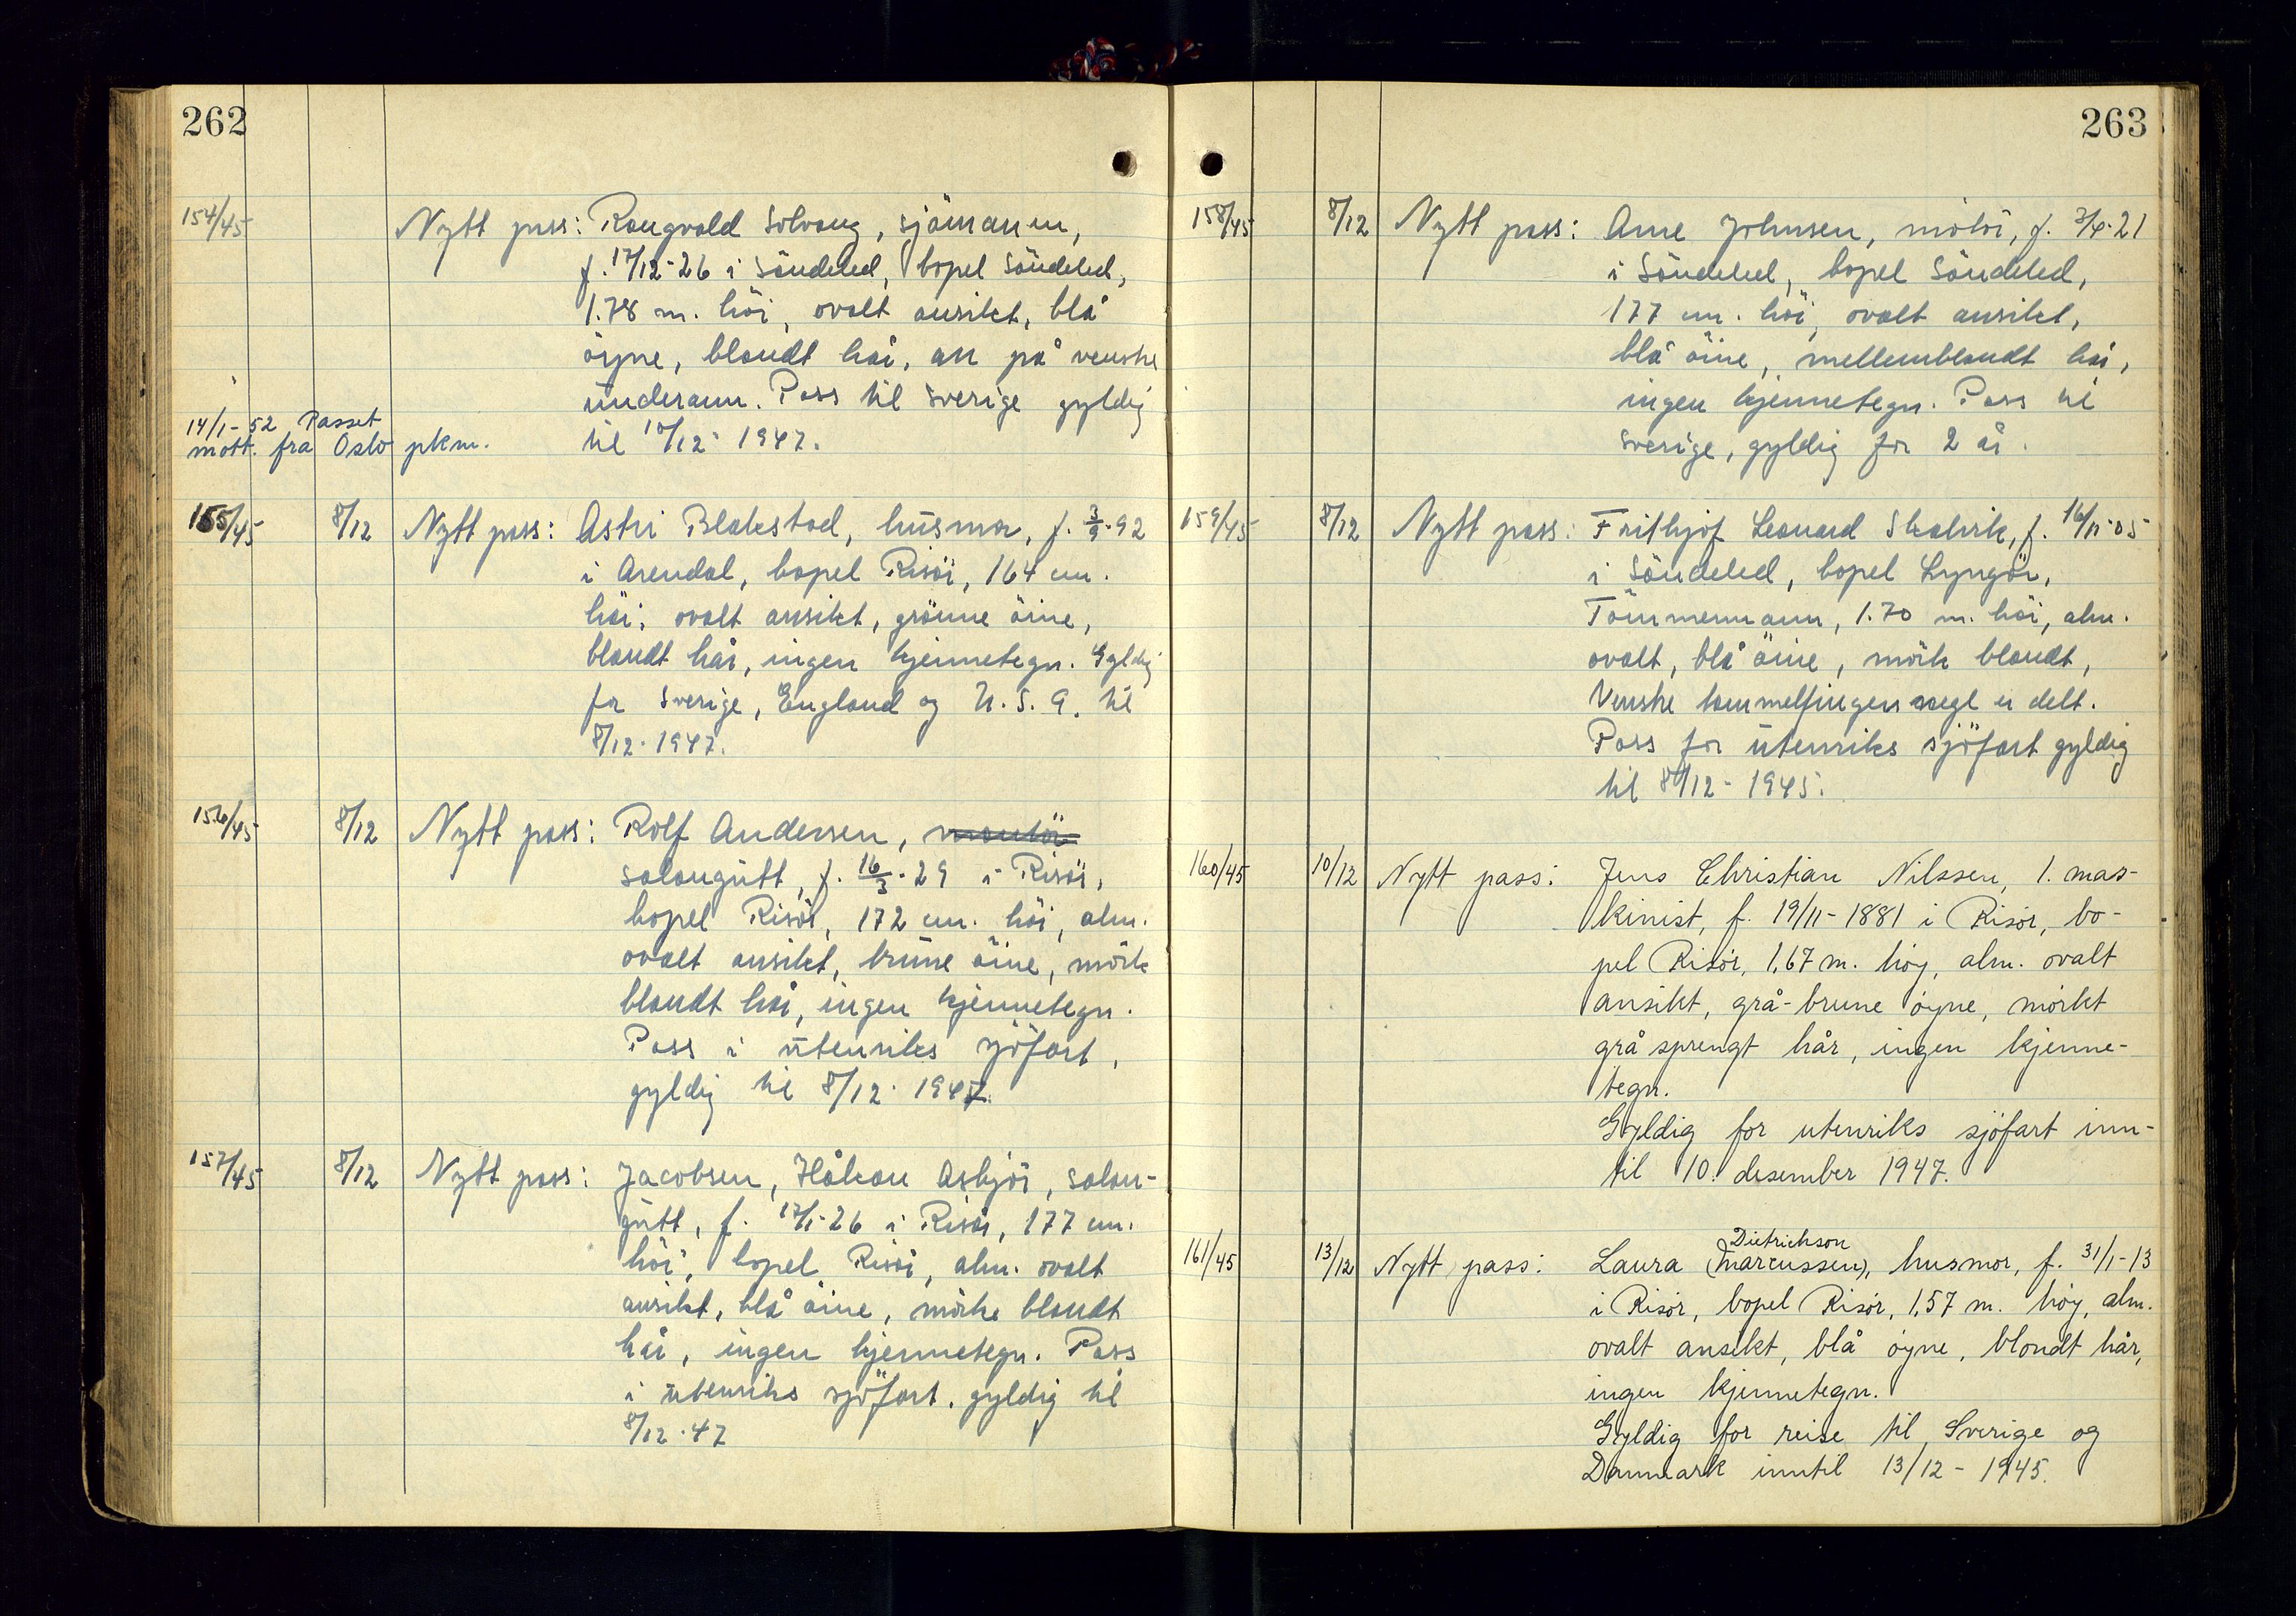 262
154/45 Nytt pass: Rangvald Solvang, sjömann,
f. 17/12-26 i Söndeled, bopel Söndeled,
1.78 m. höi, ovalt ansikt, blå
öyne, blondt hår, arr på venstre
underarm. Pass til Sverige gyldig
til 10/12- 1947.
14/1-52 Passet
mott. fra Oslo pkm.
155/45 8/12 Nytt pass: Astri Blakstad, husmor, f. 3/9-92
i Arendal, bopel Risör, 164 cm.
höi, ovalt ansikt, grönne öine,
blondt hår, ingen kjennetegn. Gyldig
for Sverige, England og U.S.A. til
8/12-1947.
156/45 8/12 Nytt pass: Rolf Andersen, montör
salongutt, f. 16/3-29 i Risör,
bopel Risör, 172 cm. höi, alm.
ovalt ansikt, brune öine, mörk
blondt hår, ingen kjennetegn.
Pass i utenriks sjöfart,
gyldig til 8/12-1947.
157/45 8/12 Nytt pass: Jacobsen, Håkon Asbjör, salon-
gutt, f. 17/1-26 i Risör, 177 cm.
höi, bopel Risör, alm. ovalt
ansikt, blå öine, mörke blondt
hår, ingen kjennetegn. Pass
i utenriks sjöfart, gyldig til
8/12-47
263
158/45 8/12 Nytt pass: Arne Johnsen, f. 21
i Söndeled, bopel Söndeled,
177 cm. höi, ovalt ansikt,
blå öine, mellemblondt hår,
ingen kjennetegn. Pass til
Sverige, gyldig for 2 år.
159/45 8/12 Nytt pass: Frithjof Leonard Skalvik, f. 16/11-05
i Söndeled, bopel Lyngör,
Tömmermann, 1.70 m. höi, alm.
ovalt, blå öine, mörk blondt,
Venstre tommelfinger negl er delt.
Pass for utenriks sjöfart gyldig
til 8/12- 1945.
160/45 10/12 Nytt pass: Jens Christian Nilssen, 1. mas-
kinist, f. 19/11-1881 i Risör, bo-
pel Risör, 1,67 m. höy, alm. ovalt
ansikt, grå-brune öyne, mörkt
gråsprengt hår, ingen kjenne-
tegn.
Gyldig for utenriks sjöfart inn-
til 10. desember 1947.
Dietrichson
161/45 13/12 Nytt pass: Laura (Marcussen), husmor, f. 31/1-13
i Risör, bopel Risör, 1,57 m. höy, alm.
ovalt ansikt, blå öyne, blondt hår,
ingen kjennetegn.
Gyldig for reise til Sverige og
Danmark inntil 13/12-1945.